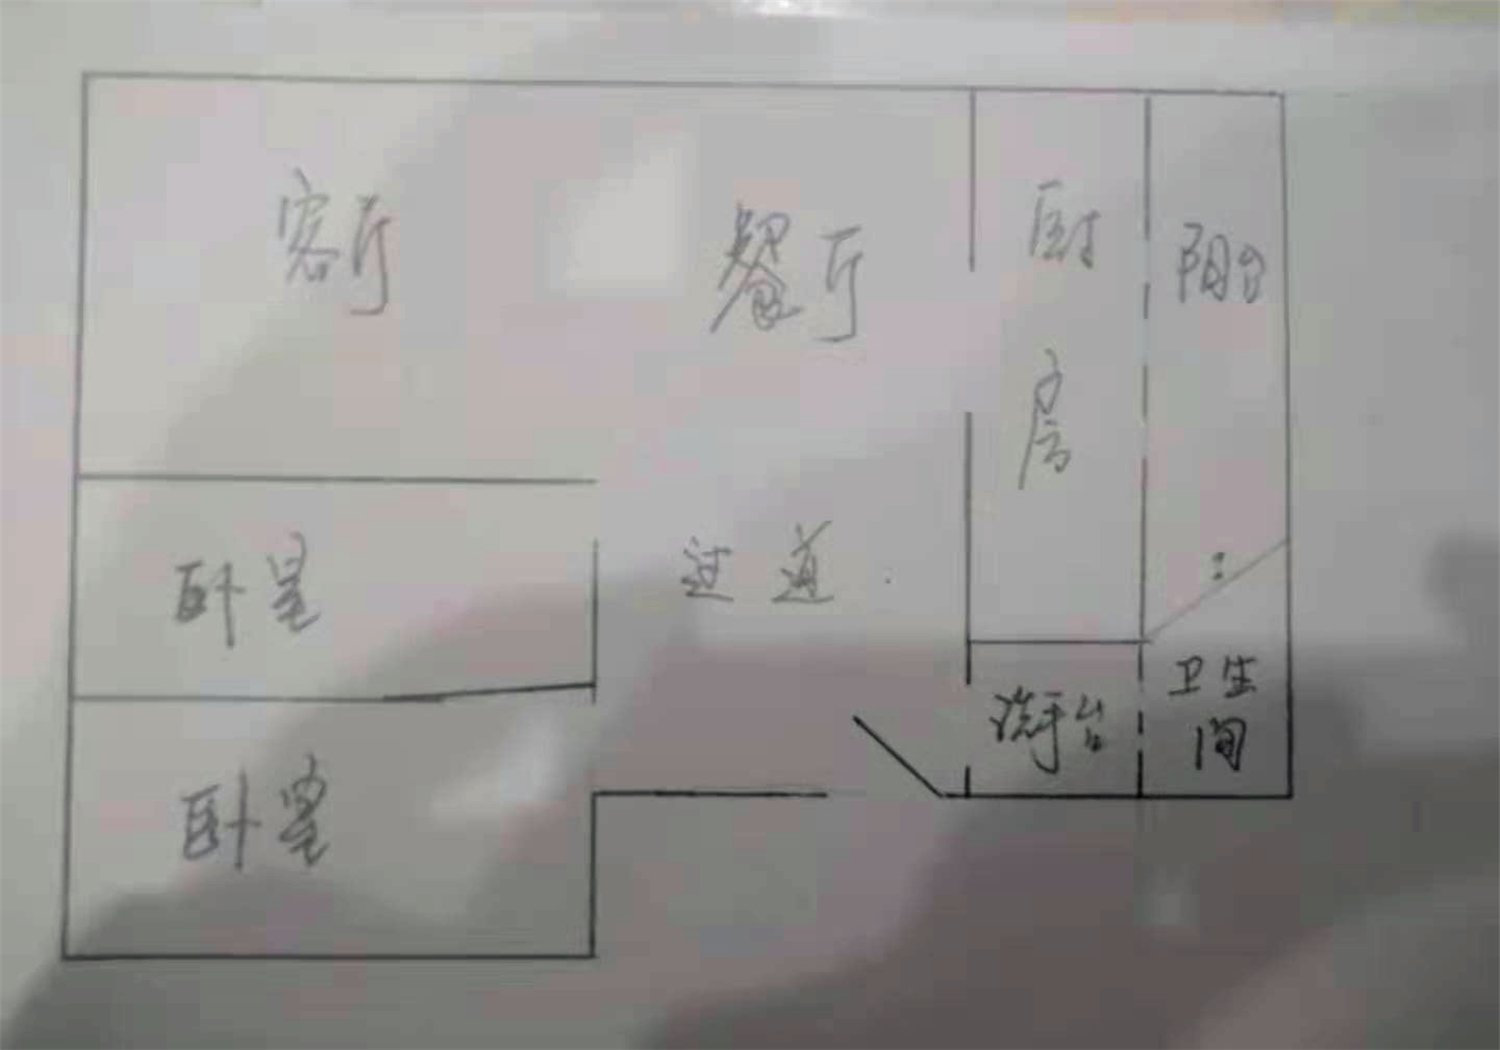 客厅
餐厅
厨房
阳台
卧室
过道
卧室
洗手台
卫生间